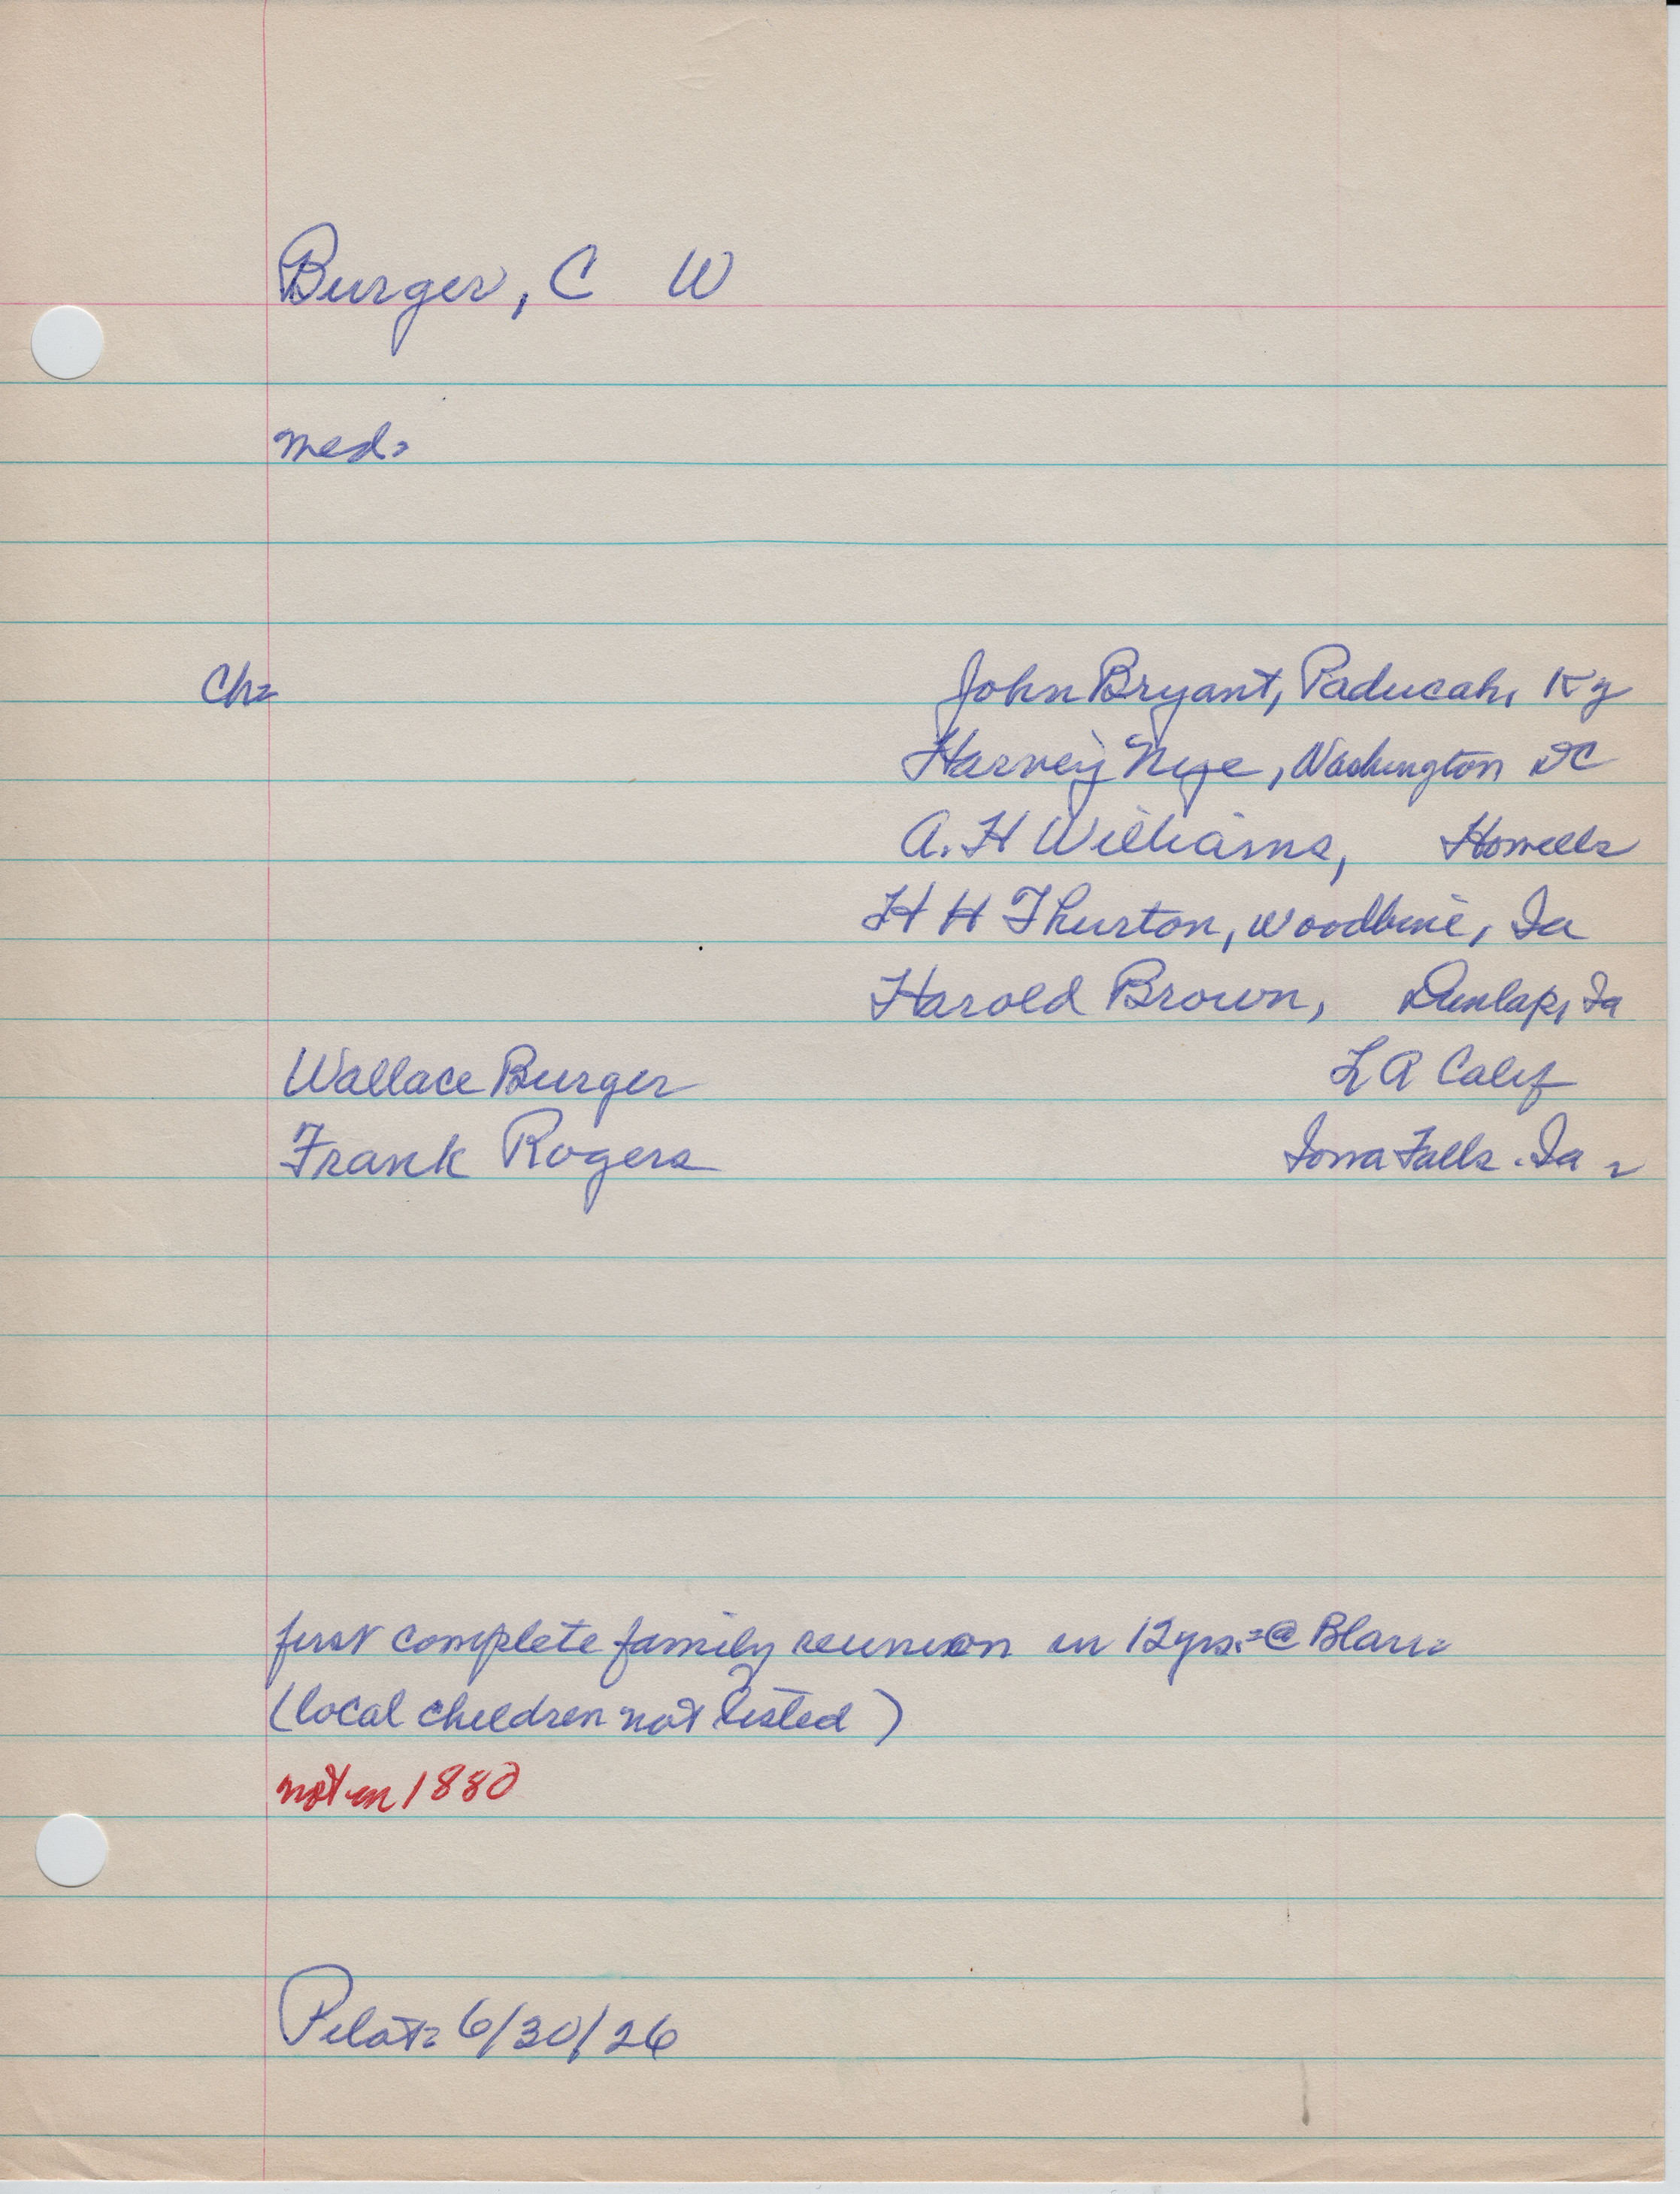 Burger, C W
med=
Ch= John Bryant, Paducah, Ky
Harvey Nye, Washington DC
A. H Williams, Howells
H H Thurton, Woodbine, Ia
Harold Brown, Dunlap, Ia
Wallace Burger L A Calif
Frank Rogers Iowa Falls. Ia =
first complete family reunion in 12 yrs.=@ Blair=
(local children not listed)
not in 1880
Pilot= 6/30/26